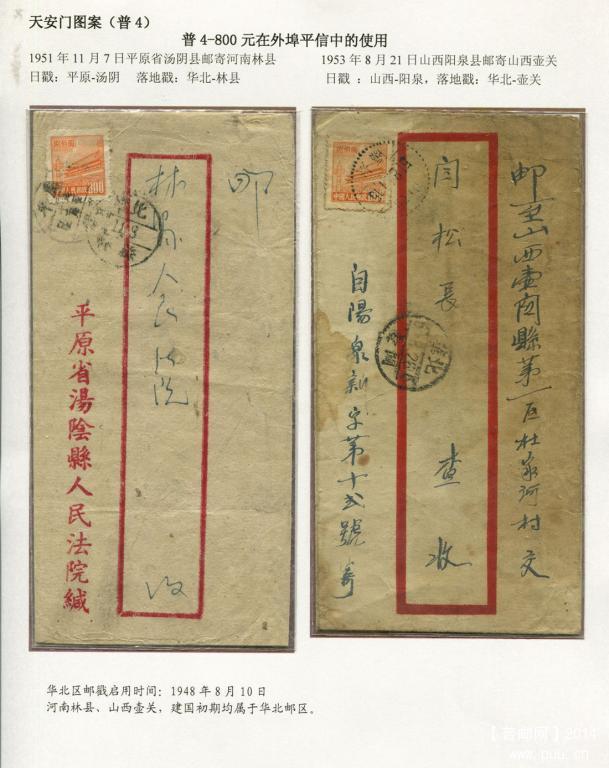 天安门图案（普4）
普4-800元在外埠平信中的使用
1951年11月7日平原省汤阴县邮寄河南林县
日戳：平原-汤阴 落地戳：华北-林县
1953年8月21日山西阳泉县邮寄山西壶关
日戳：山西-阳泉，落地戳：华北-壶关
800
邮
林县人民法院
收
平原省湯陰縣人民法院緘
邮至山西壶関縣第一区杜家河村交
闫松長 查收
自陽泉新字第十弍號寄
华北区邮戳启用时间：1948年8月10日
河南林县、山西壶关，建国初期均属于华北邮区。
2014